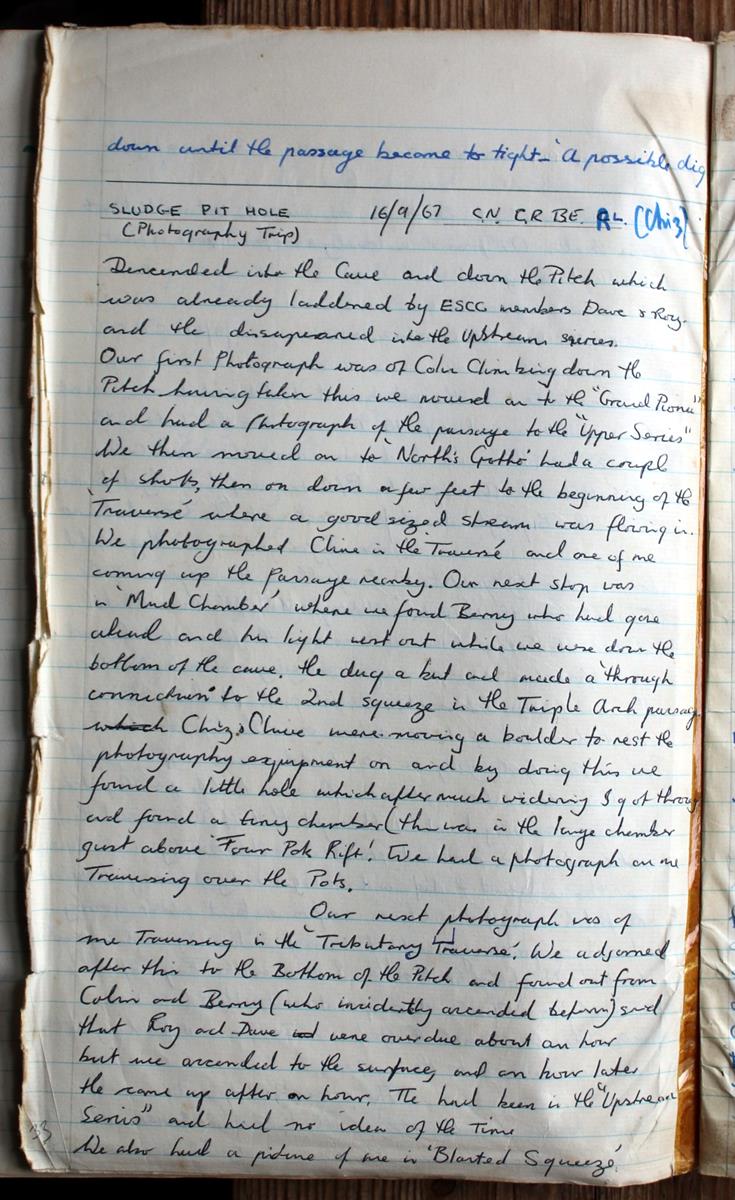 down until the passage become to tight - A possible dig
SLUDGE PIT HOLE 16/9/67 C.N. C.R BE. RL. (Chiz)
(Photography Trip)
Dencended into the Cave and down the Pitch which
was already laddened by ESCC members Dave & Roy.
and the dissapeared into the Upstream sqeries.
Our first Photograph was of Coln Climbing down the
Pitch having taken this we moved on to the "Grand Piano"
and had a Photograph of the passage to the "Upper Series"
We then moved on to 'North's Grotto' had a coupl
of shots, then on down a few feet to the beginning of the
'Traverse' where a good sized stream was flowing in.
We photographed Clive in the 'Traverse' and one of me
coming up the Passage nearby. Our next stop was
in 'Mud Chamber' where we found Berny who had gone
ahead and his light went out while we were down the
bottom of the cave. the dug a but and made a 'through
connection' to the 2nd squeeze in the Triple Arch passage
which Chiz & Clive were moving a boulder to rest the
photography equipment on and by doing this we
found a little hole which after much widening I got throug
and found a tiny chamber (this was in the large chamber
gust above 'Four Pots Rift'. We had a photograph on me
Traversing over the Pots.
Our next photograph was of
me Traversing in the 'Tributary Traverse'. We adjorned
after this to the Bottom of the Pitch and found out from
Colin and Berny (who incidently ascended before) said
that Roy and Dave were overdue about an hour
but we ascended to the surface, and an hour later
the came up after on hour, The had been in the "Upstream
Series" and had no idea of the Time
We also had a picture of me in 'Blasted Squeeze'
33